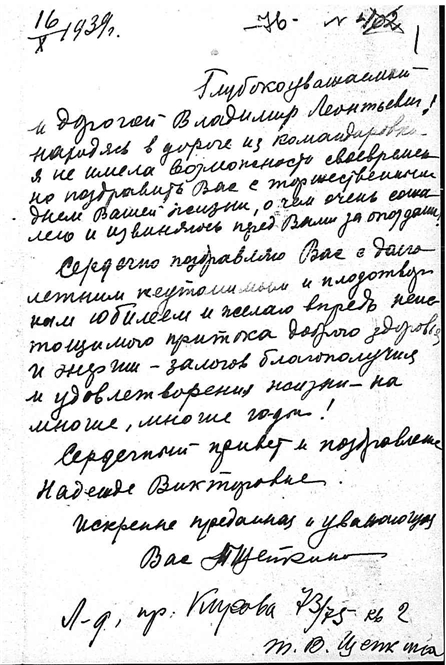 16/X 1939г. -76- N 402 1
Глубокоуважаемый
и дорогой Владимир Леонтьевич!
находясь в дороге из командировки
я не имела возможности своевремен
но поздравить Вас с торжественным
днем Вашей жизни, о чем очень сожа
лею и извиняюсь перед Вами за опоздание
Сердечно поздравляю Вас с долго
летним неутомимым и плодотвор
ным юбилеем и желаю впредь неис
тощимого притока доброго здоровья
и энергии - залогов благополучия
и удовлетворения жизни - на
многие, многие годы!
Сердечный привет и поздравление
Надежде Викторовне.
Искренне преданная и уважающая
Вас Т Щепкина
Л-д, пр. Кирова 73/75 кв 2
Т. В. Щепкина